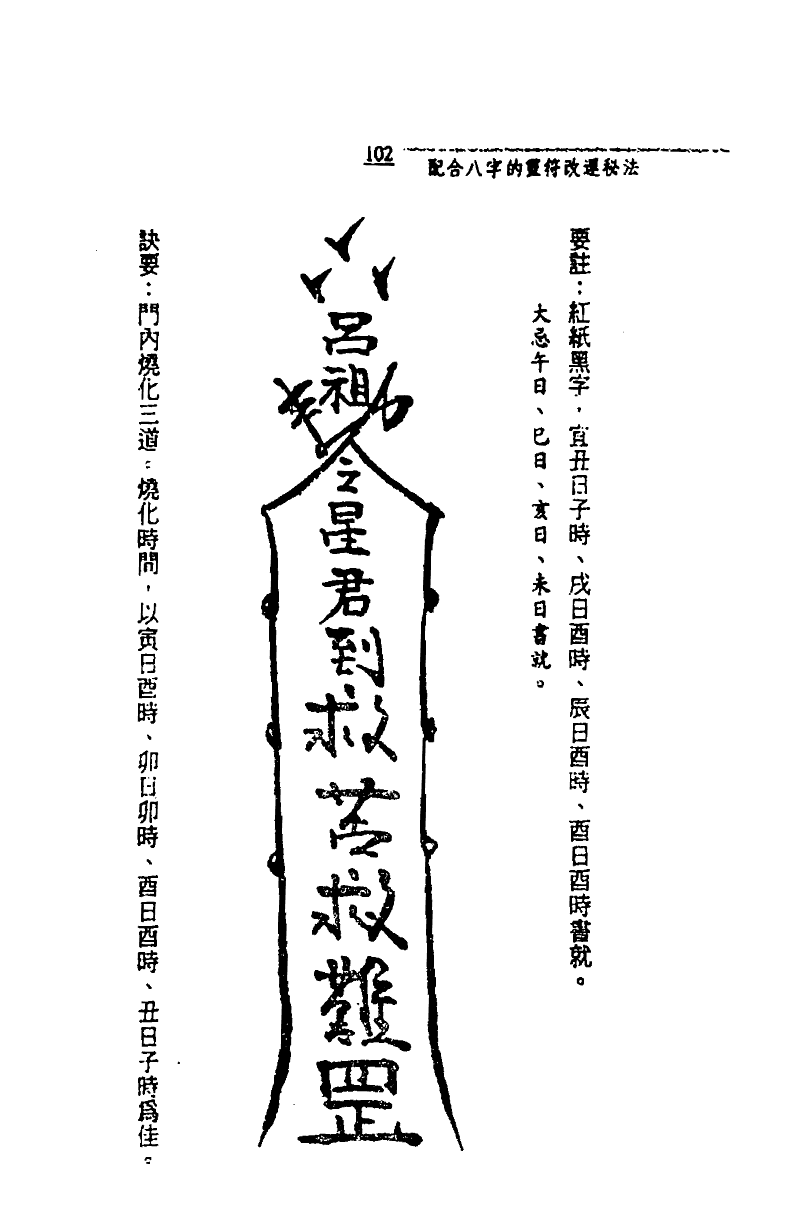 102
配合八字的靈符改運秘法
要註：紅紙黑字，宜丑日子時、戌日酉時、辰日酉時、酉日酉時書就。
大忌午日、巳日、亥日、未日書就。
呂祖
令星君到救苦救難罡
訣要：門內燒化三道。燒化時間，以寅日酉時、卯日卯時、酉日酉時、丑日子時為佳。